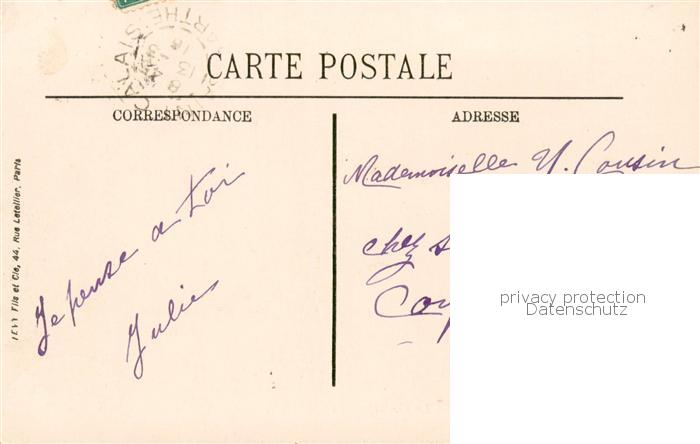 CALAIS
SARTHE
CARTE POSTALE
CORRESPONDANCE
ADRESSE
Je pense a toi
Julie
Mademoiselle Y. Cousin
chez
LEVY Fils et Cie, 44, Rue Letellier, Paris
privacy protection
Datenschutz